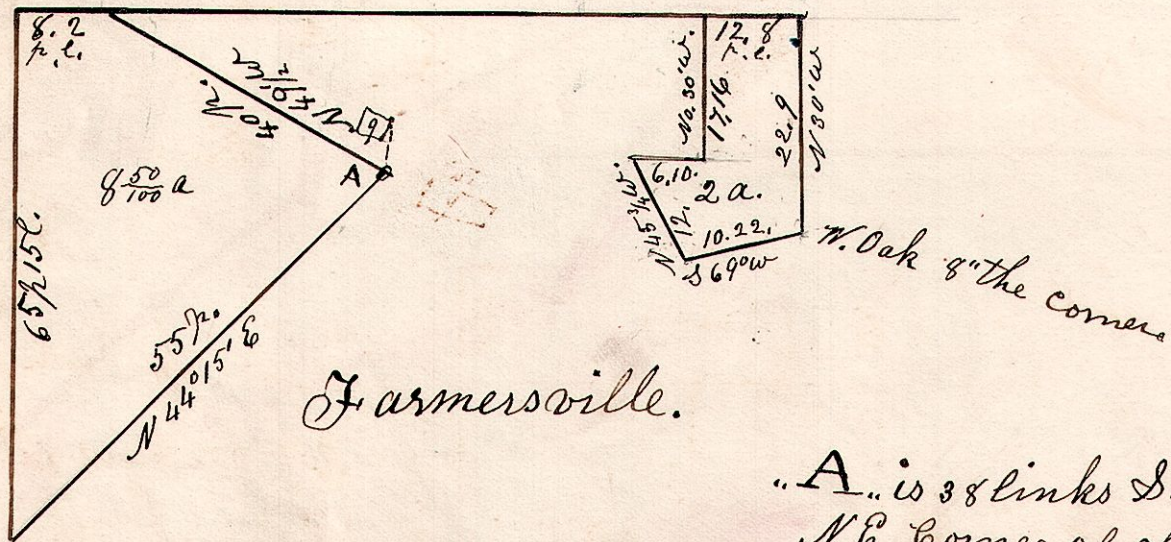 8. 2
p. l.
N 49½ W
40 p.
9
A
8 50/100 a
65 p 15 l.
55 p.
N 44° 15' E
No. 30' W.
17,16
12. 8
p. l.
22.9
N 30' W
6,10.
2 a.
N 45¾ W.
12.
10.22.
S 69° W
W. Oak 8" the corner
Farmersville.
"A" is 38 links S.
N E Corner of